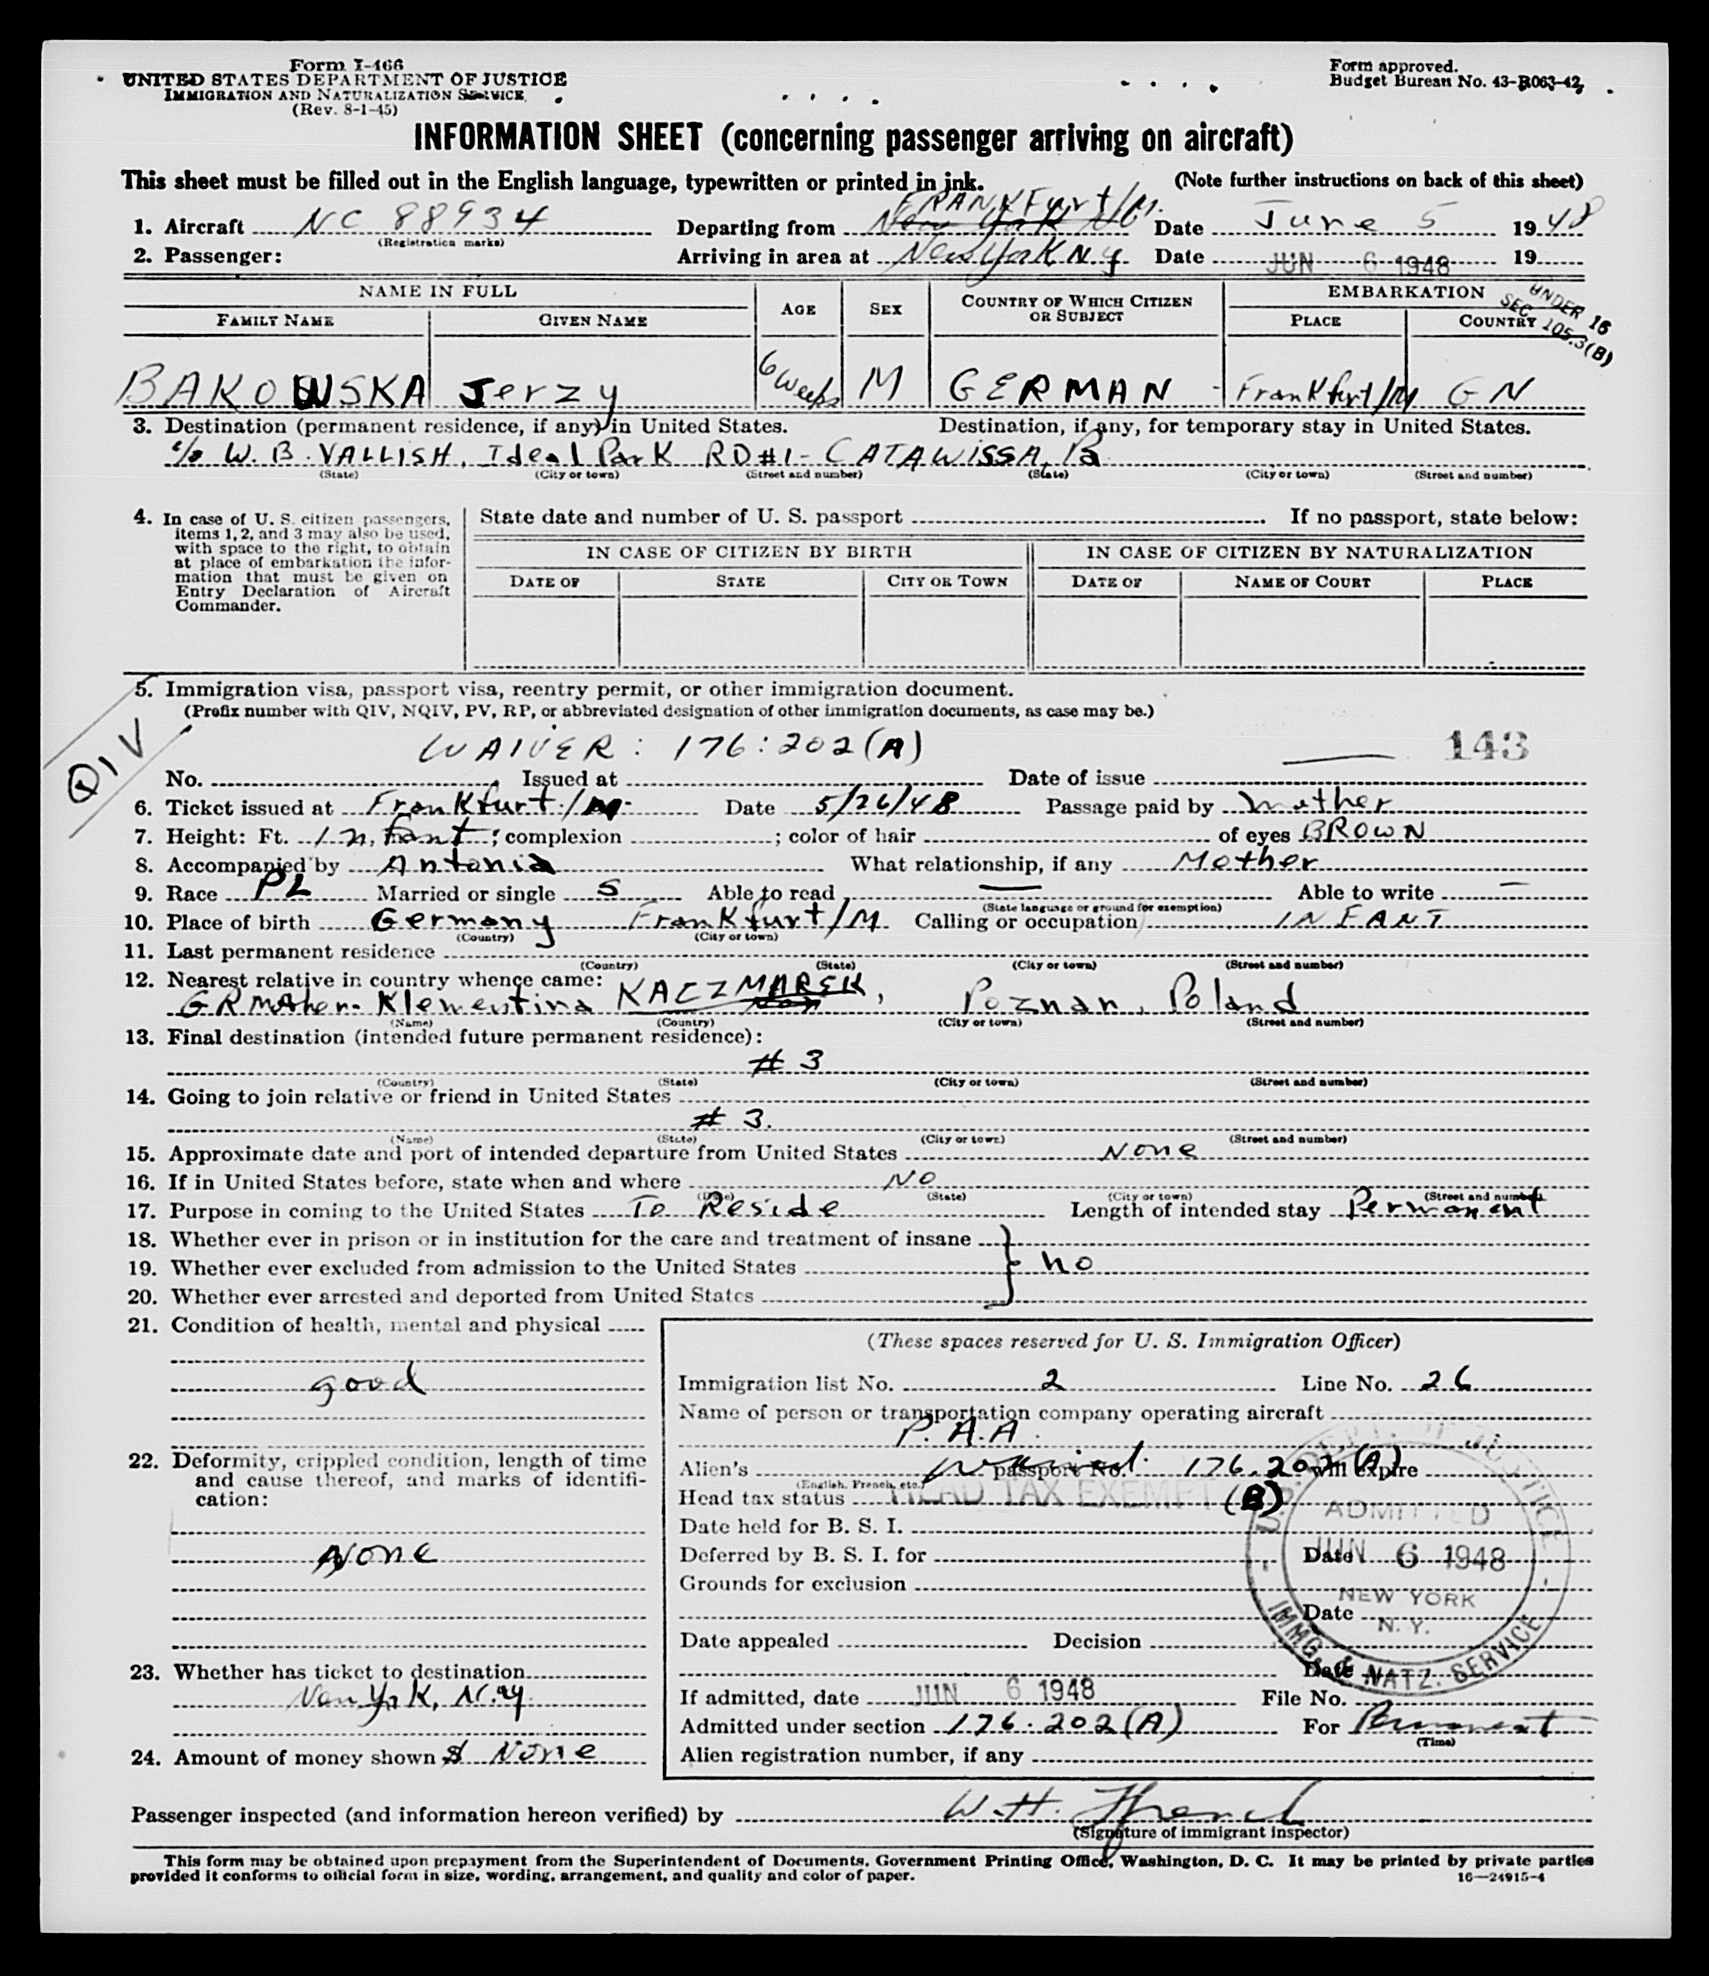 Form I-466
UNITED STATES DEPARTMENT OF JUSTICE
IMMIGRATION AND NATURALIZATION SERVICE
(Rev. 8-1-45)
Form approved.
Budget Bureau No. 43-R063-42
INFORMATION SHEET (concerning passenger arriving on aircraft)
This sheet must be filled out in the English language, typewritten or printed in ink. (Note further instructions on back of this sheet)
FRANKFurt/M.
1. Aircraft NC 88934 Departing from New York Date June 5 1948
(Registration marks)
2. Passenger: Arriving in area at New York N.Y. Date JUN 6 1948 19
NAME IN FULL AGE SEX COUNTRY OF WHICH CITIZEN OR SUBJECT EMBARKATION
FAMILY NAME GIVEN NAME PLACE COUNTRY
UNDER 16
SEC. 105.3(B)
BAKOWSKA Jerzy 6 weeks M GERMAN - Frankfurt/M GN
3. Destination (permanent residence, if any) in United States. Destination, if any, for temporary stay in United States.
c/o W. B. VALLISH, Ideal Park RD #1 - CATAWISSA, Pa
(State) (City or town) (Street and number) (State) (City or town) (Street and number)
4. In case of U. S. citizen passengers, items 1, 2, and 3 may also be used, with space to the right, to obtain at place of embarkation the information that must be given on Entry Declaration of Aircraft Commander.
State date and number of U. S. passport If no passport, state below:
IN CASE OF CITIZEN BY BIRTH IN CASE OF CITIZEN BY NATURALIZATION
DATE OF STATE CITY OR TOWN DATE OF NAME OF COURT PLACE
5. Immigration visa, passport visa, reentry permit, or other immigration document.
(Prefix number with QIV, NQIV, PV, RP, or abbreviated designation of other immigration documents, as case may be.)
QIV
WAIVER: 176:202(A) 143
No. Issued at Date of issue
6. Ticket issued at Frankfurt/M. Date 5/26/48 Passage paid by Mother
7. Height: Ft. Infant; complexion ; color of hair of eyes BROWN
8. Accompanied by Antonia What relationship, if any Mother
9. Race PL Married or single S Able to read — Able to write —
(State language or ground for exemption)
10. Place of birth Germany Frankfurt/M Calling or occupation INFANT
(Country) (City or town)
11. Last permanent residence
(Country) (State) (City or town) (Street and number)
12. Nearest relative in country whence came:
GRMother - Klementina KACZMAREK, Poznan, Poland
(Name) (Country) (City or town) (Street and number)
13. Final destination (intended future permanent residence):
# 3
(Country) (State) (City or town) (Street and number)
14. Going to join relative or friend in United States
# 3.
(Name) (State) (City or town) (Street and number)
15. Approximate date and port of intended departure from United States None
16. If in United States before, state when and where NO
(Date) (State) (City or town) (Street and number)
17. Purpose in coming to the United States To Reside Length of intended stay Permanent
18. Whether ever in prison or in institution for the care and treatment of insane
19. Whether ever excluded from admission to the United States } no
20. Whether ever arrested and deported from United States
21. Condition of health, mental and physical
good
22. Deformity, crippled condition, length of time and cause thereof, and marks of identification:
None
23. Whether has ticket to destination
New York, N.Y.
24. Amount of money shown $ None
(These spaces reserved for U. S. Immigration Officer)
Immigration list No. 2 Line No. 26
Name of person or transportation company operating aircraft
P.A.A.
Alien's Waived passport No. 176.202(A) will expire
(English, French, etc.)
Head tax status HEAD TAX EXEMPT (B)
Date held for B. S. I.
Deferred by B. S. I. for Date
Grounds for exclusion
Date
Date appealed Decision
Date
U.S. DEPT. OF JUSTICE
ADMITTED
JUN 6 1948
NEW YORK
N.Y.
IMMG. & NATZ. SERVICE
If admitted, date JUN 6 1948 File No.
Admitted under section 176.202(A) For Permanent
(Time)
Alien registration number, if any
Passenger inspected (and information hereon verified) by W. H.
(Signature of immigrant inspector)
This form may be obtained upon prepayment from the Superintendent of Documents, Government Printing Office, Washington, D. C. It may be printed by private parties
provided it conforms to official form in size, wording, arrangement, and quality and color of paper. 16—24915-4